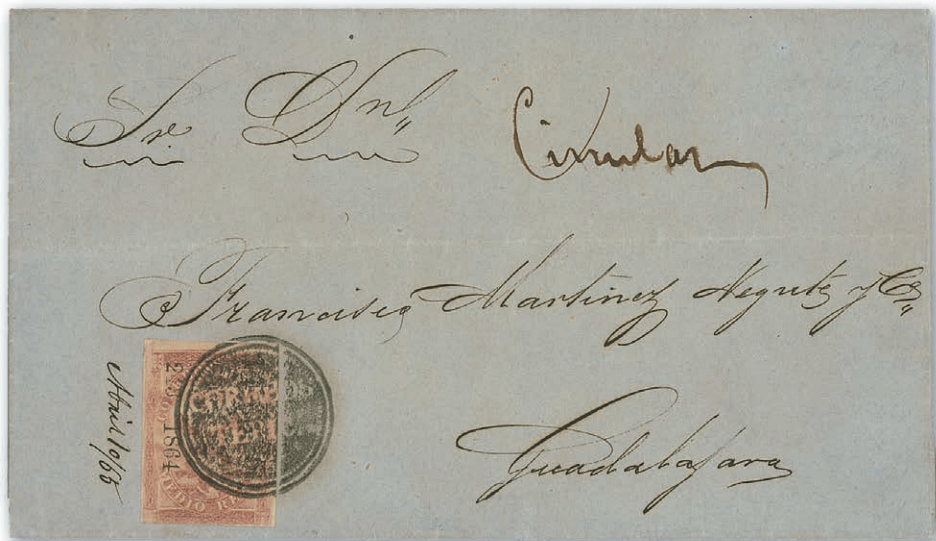 Sres Dn
Circular
Francisco Martinez Negrete y Ca
Guadalajara
Abril 10/65
1864
MEDIO R